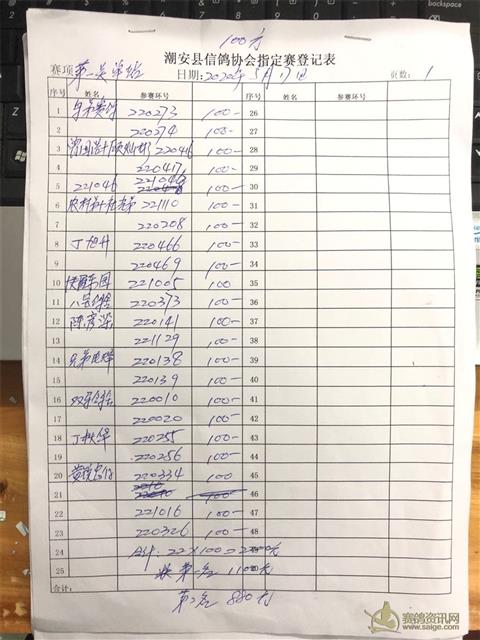 100元
潮安县信鸽协会指定赛登记表
赛项 第一关单站 日期: 2022年5月17日 页数: 1
序号 姓名 参赛环号 序号 姓名 参赛环号
1 220273 100- 26
2 220274 100- 27
3 22046 100- 28
4 220417 100- 29
5 221046 100- 30
6 221110 100- 31
7 220208 100- 32
8 丁旭升 220466 100- 33
9 220469 100- 34
10 221005 100 35
11 220373 100- 36
12 陈彦深 220141 100- 37
13 221129 100- 38
14 220138 100- 39
15 220139 100- 40
16 220010 100- 41
17 220020 100- 42
18 丁秋华 220255 100- 43
19 220256 100- 44
20 220334 100 45
21 100 46
22 221016 100- 47
23 220326 100- 48
24 合计: 22×100=2200元
25 第一名 1100元
合计:
第二名 880元
赛鸽资讯网
www.saige.com